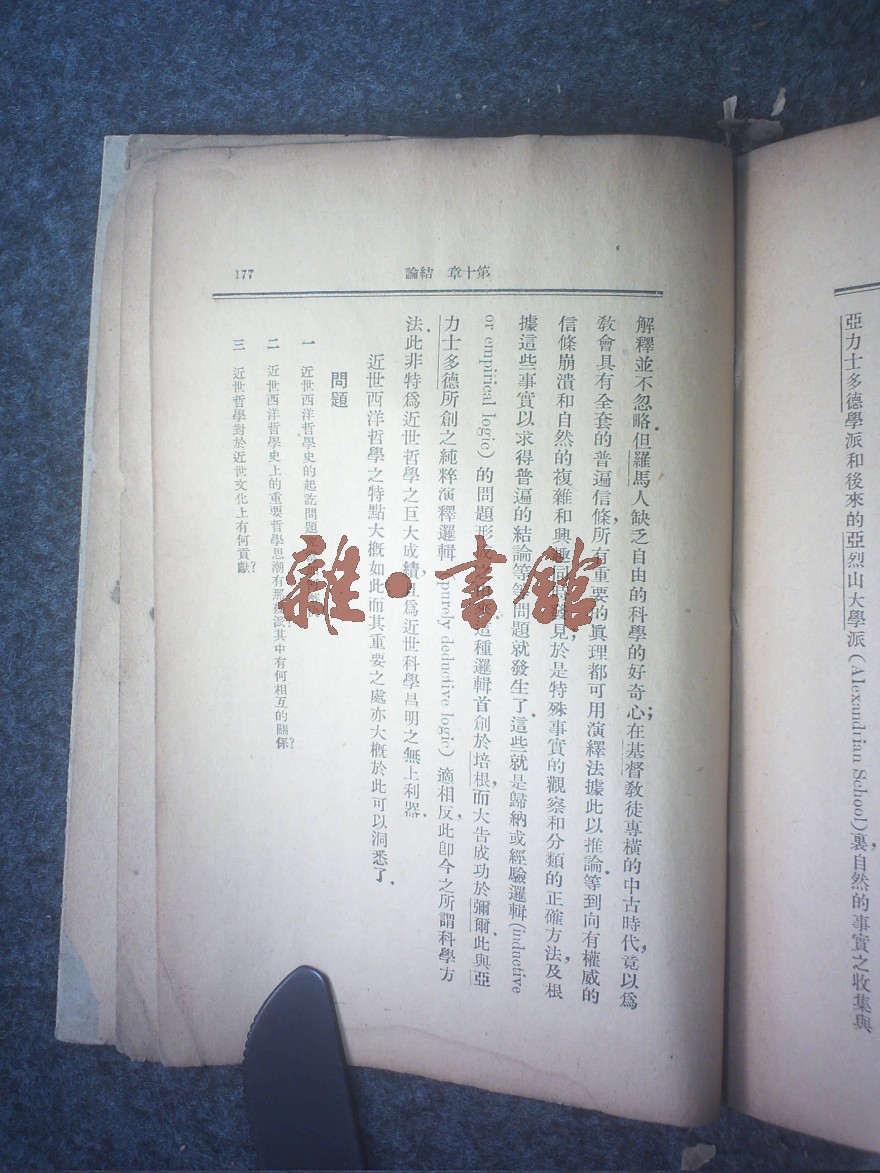 亞力士多德學派和後來的亞烈山大學派(Alexandrian School)裏,自然的事實之收集與
第十章 結論
177
解釋並不忽略.但羅馬人缺乏自由的科學的好奇心;在基督教徒專橫的中古時代,竟以爲
教會具有全套的普遍信條,所有重要的眞理都可用演釋法據此以推論.等到向有權威的
信條崩潰和自然的複雜和興趣同時發見,於是特殊事實的觀察和分類的正確方法,及根
據這些事實以求得普遍的結論等等問題就發生了.這些就是歸納或經驗邏輯(inductive
or empirical logic)的問題形 這種邏輯首創於培根,而大告成功於彌爾.此與亞
力士多德所創之純粹演釋邏輯(purely deductive logic)適相反,此卽今之所謂科學方
法.此非特爲近世哲學之巨大成績,且爲近世科學昌明之無上利器.
近世西洋哲學之特點大槪如此,而其重要之處亦大槪於此可以洞悉了.
問題
一 近世西洋哲學史的起訖問題
二 近世西洋哲學史上的重要哲學思潮有那 派?其中有何相互的關係?
三 近世哲學對於近世文化上有何貢獻?
雜·書館